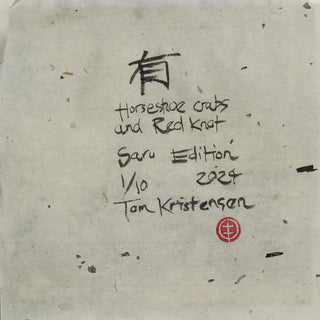 有
Horseshoe crabs
and Red Knot
Saru Edition
1/10 2024
Tom Kristensen